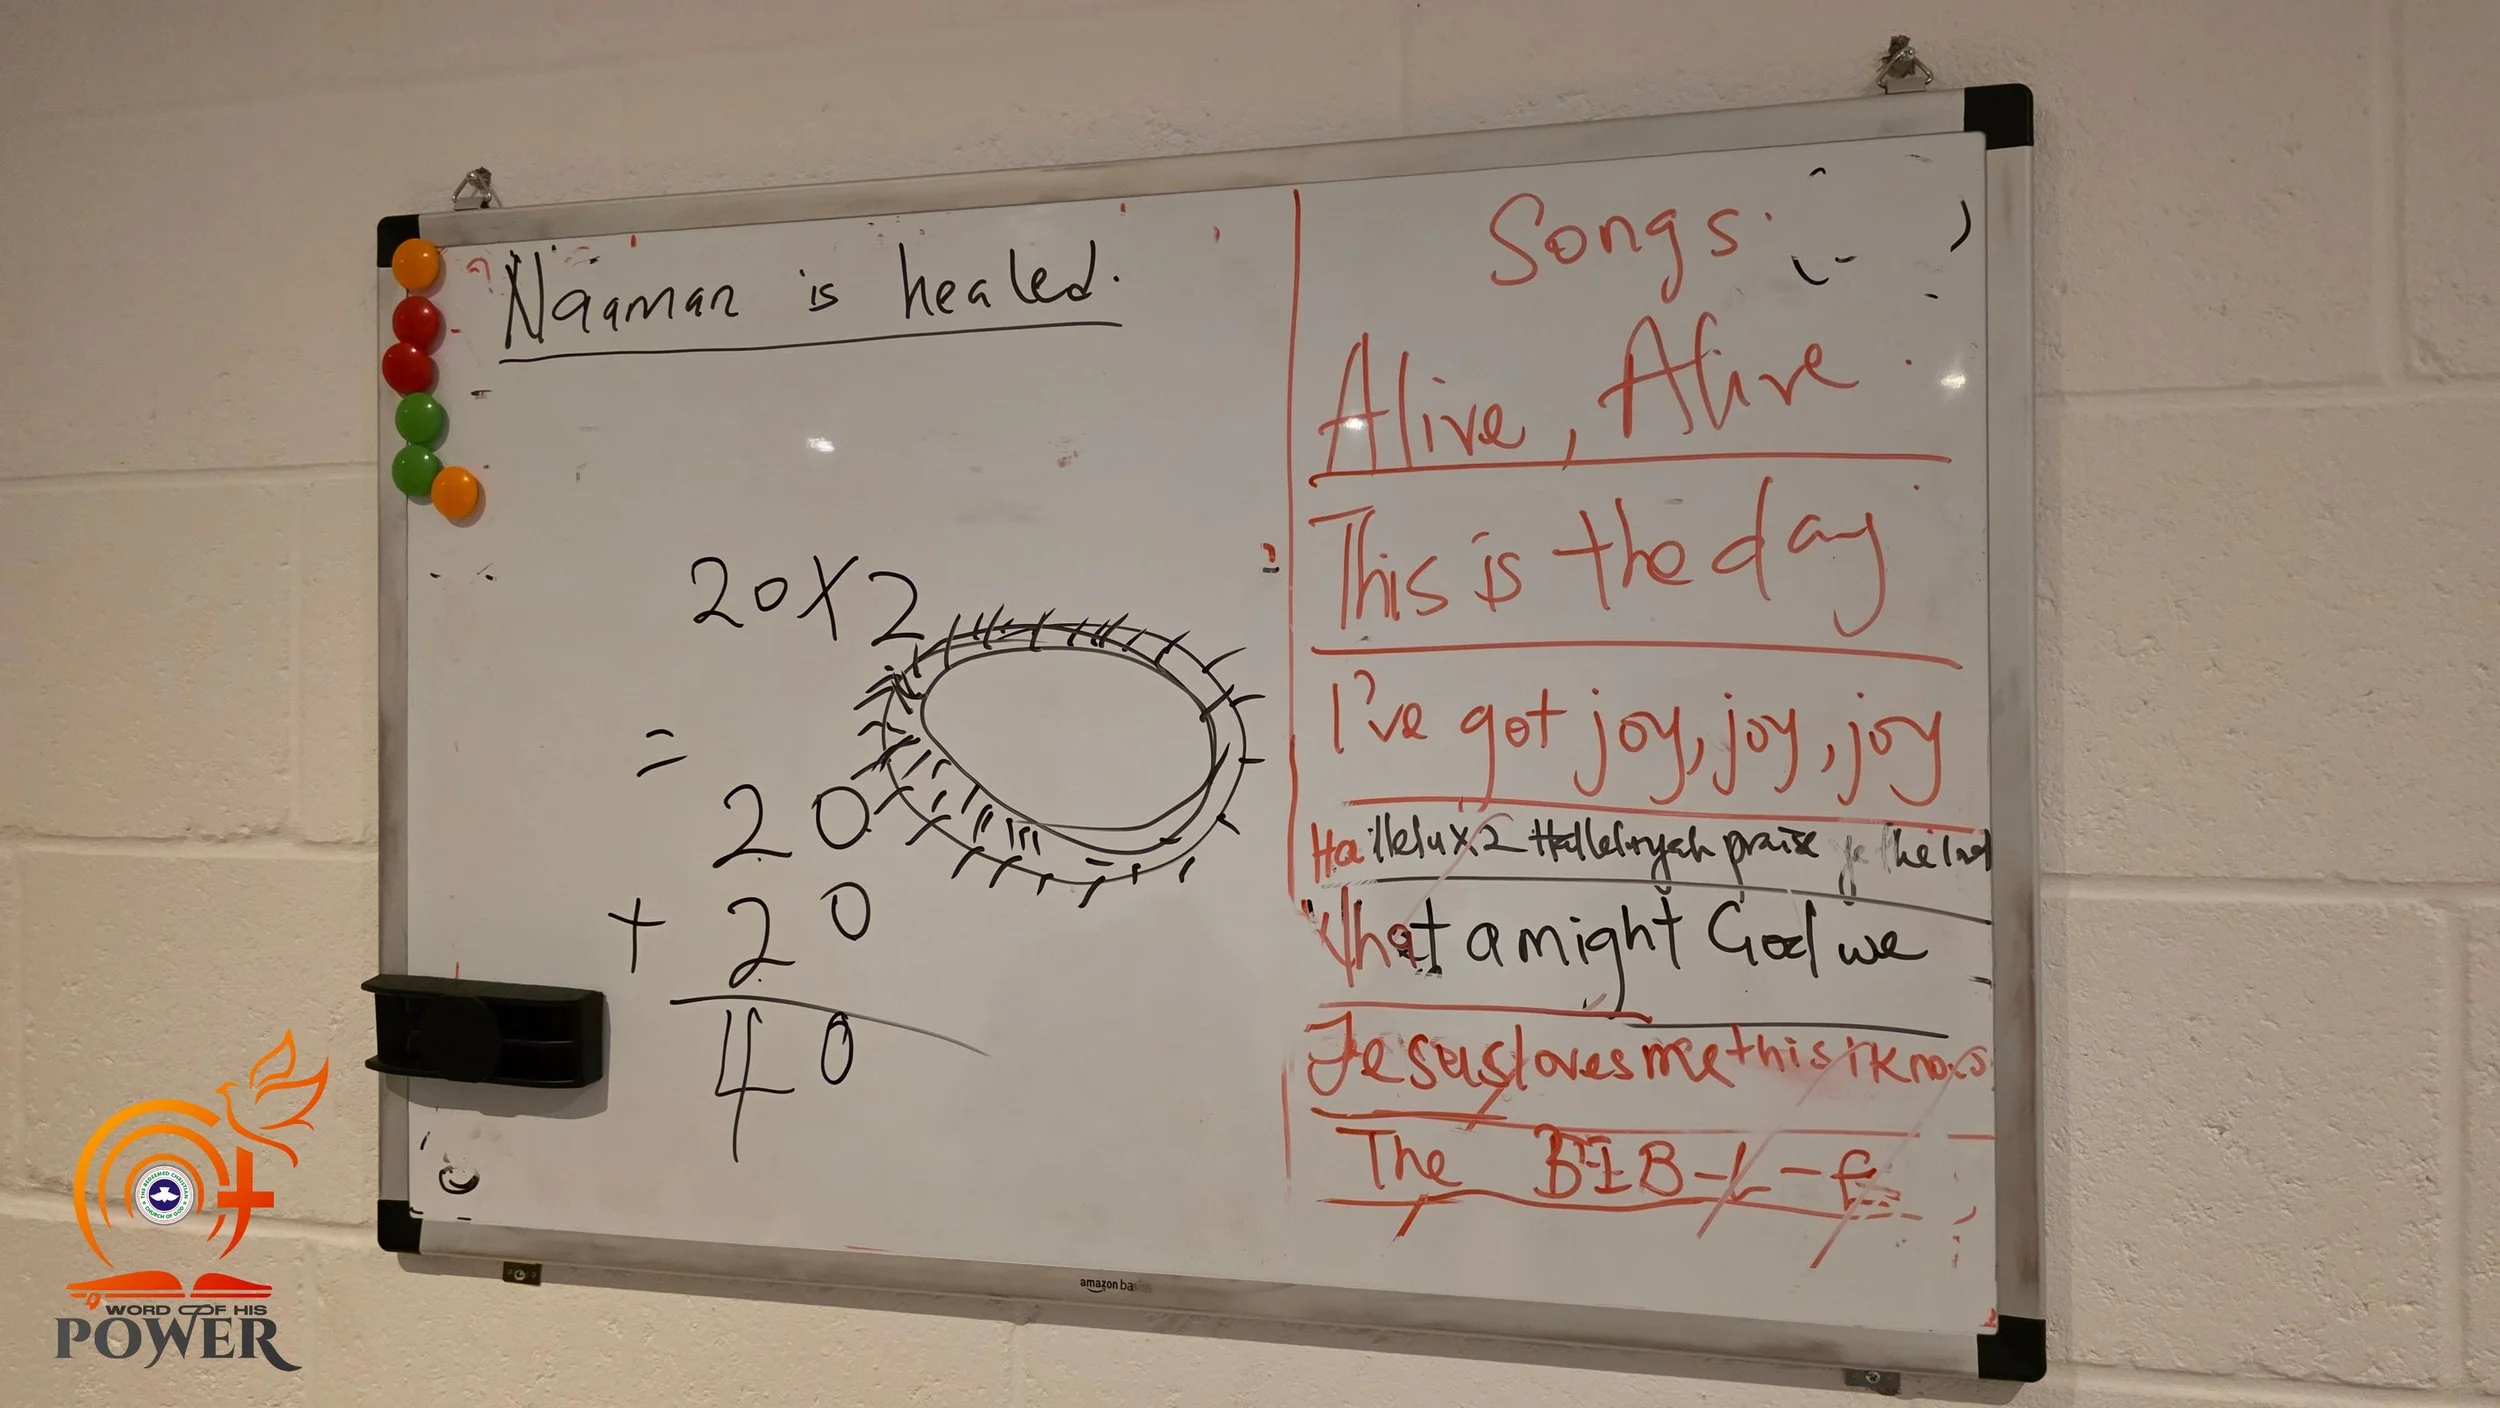 Naaman is healed.
20 X 2
=
20
+ 20
40
Songs:
Alive, Alive
This is the day
I've got joy, joy, joy
Hallelu X2 Hallelujah praise ye the Lord
What a might God we
Jesus loves me this I know
The B-I-B-L-E
amazon basics
THE REDEEMED CHRISTIAN CHURCH OF GOD
WORD OF HIS
POWER